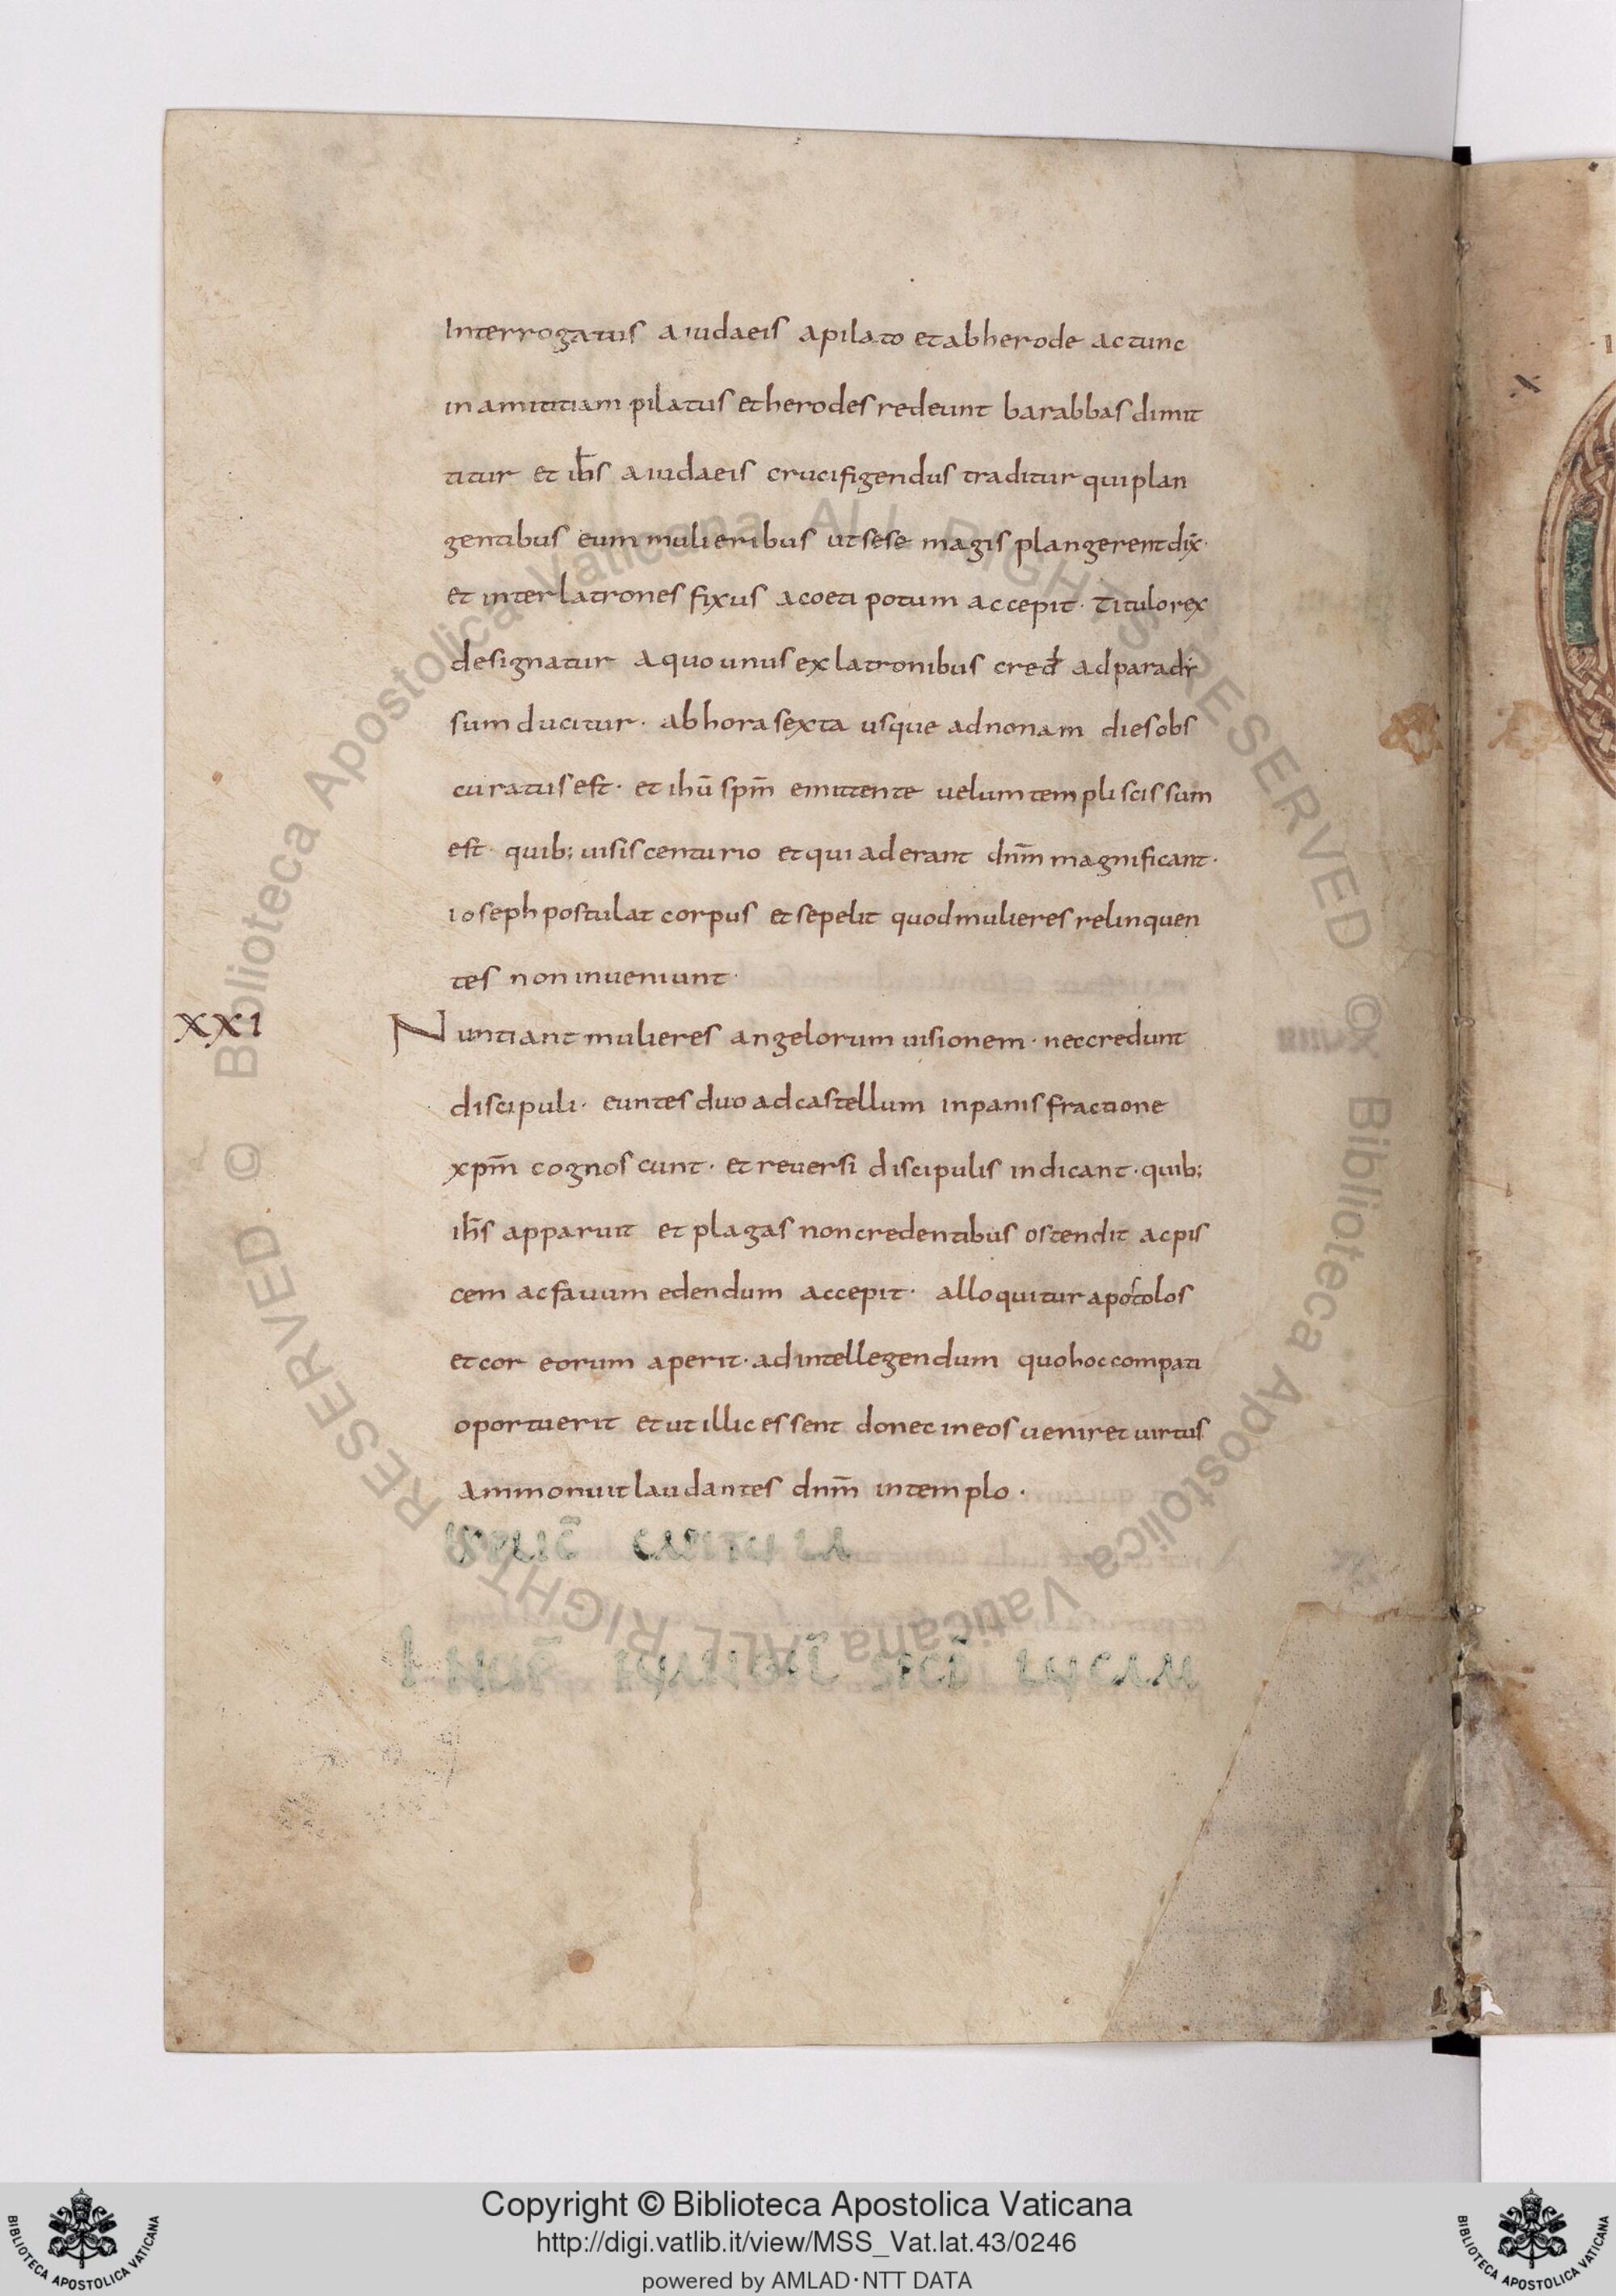 Interrogatus aiudaeis apilato etabherode actunc
inamititiam pilatus etherodes redeunt barabbas dimit
titur et ih̅s aiudaeis crucifigendus traditur quiplan
gentibus eum mulieribus utsese magis plangerent dix̅·
et interlatrones fixus acoeti potum accepit · Titulo rex
designatur aquo unus ex latronibus cred̅ adparadi
sum ducitur · abhora sexta usque adnonam dies obs
curatus est · et ihu̅ spm̅ emittente uelum templi scissum
est · quib; uisis centurio et qui aderant dnm̅ magnificant ·
ioseph postulat corpus et sepelit quod mulieres relinquen
tes non inueniunt ·
XXI Nuntiant mulieres angelorum uisionem · nec credunt
discipuli · euntes duo ad castellum in panis fractione
xpm̅ cognoscunt · et reuersi discipulis indicant · quib;
ih̅s apparuit et plagas non credentibus ostendit ac pis
cem ac fauum edendum accepit · alloquitur apostolos
et cor eorum aperit · ad intellegendum quo hoc compati
oportuerit et ut illic essent donec in eos ueniret uirtus
ammonuit laudantes dnm̅ in templo ·
© Biblioteca Apostolica Vaticana ALL RIGHTS RESERVED
© Biblioteca Apostolica Vaticana ALL RIGHTS RESERVED
Copyright © Biblioteca Apostolica Vaticana
http://digi.vatlib.it/view/MSS_Vat.lat.43/0246
powered by AMLAD·NTT DATA
BIBLIOTECA APOSTOLICA VATICANA
BIBLIOTECA APOSTOLICA VATICANA